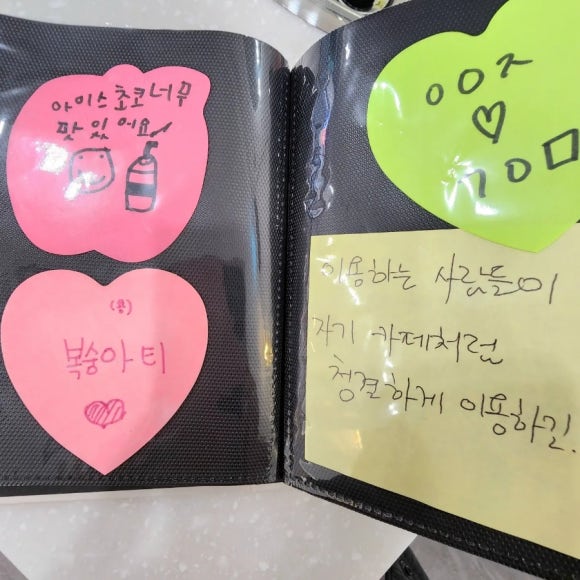 아이스초코너무
맛있어요
(홍)
복숭아티
ㅇㅇㅈ
♡
ㄱㅇㅁ
이용하는 사람들이
자기 카페처럼
청결하게 이용하길.